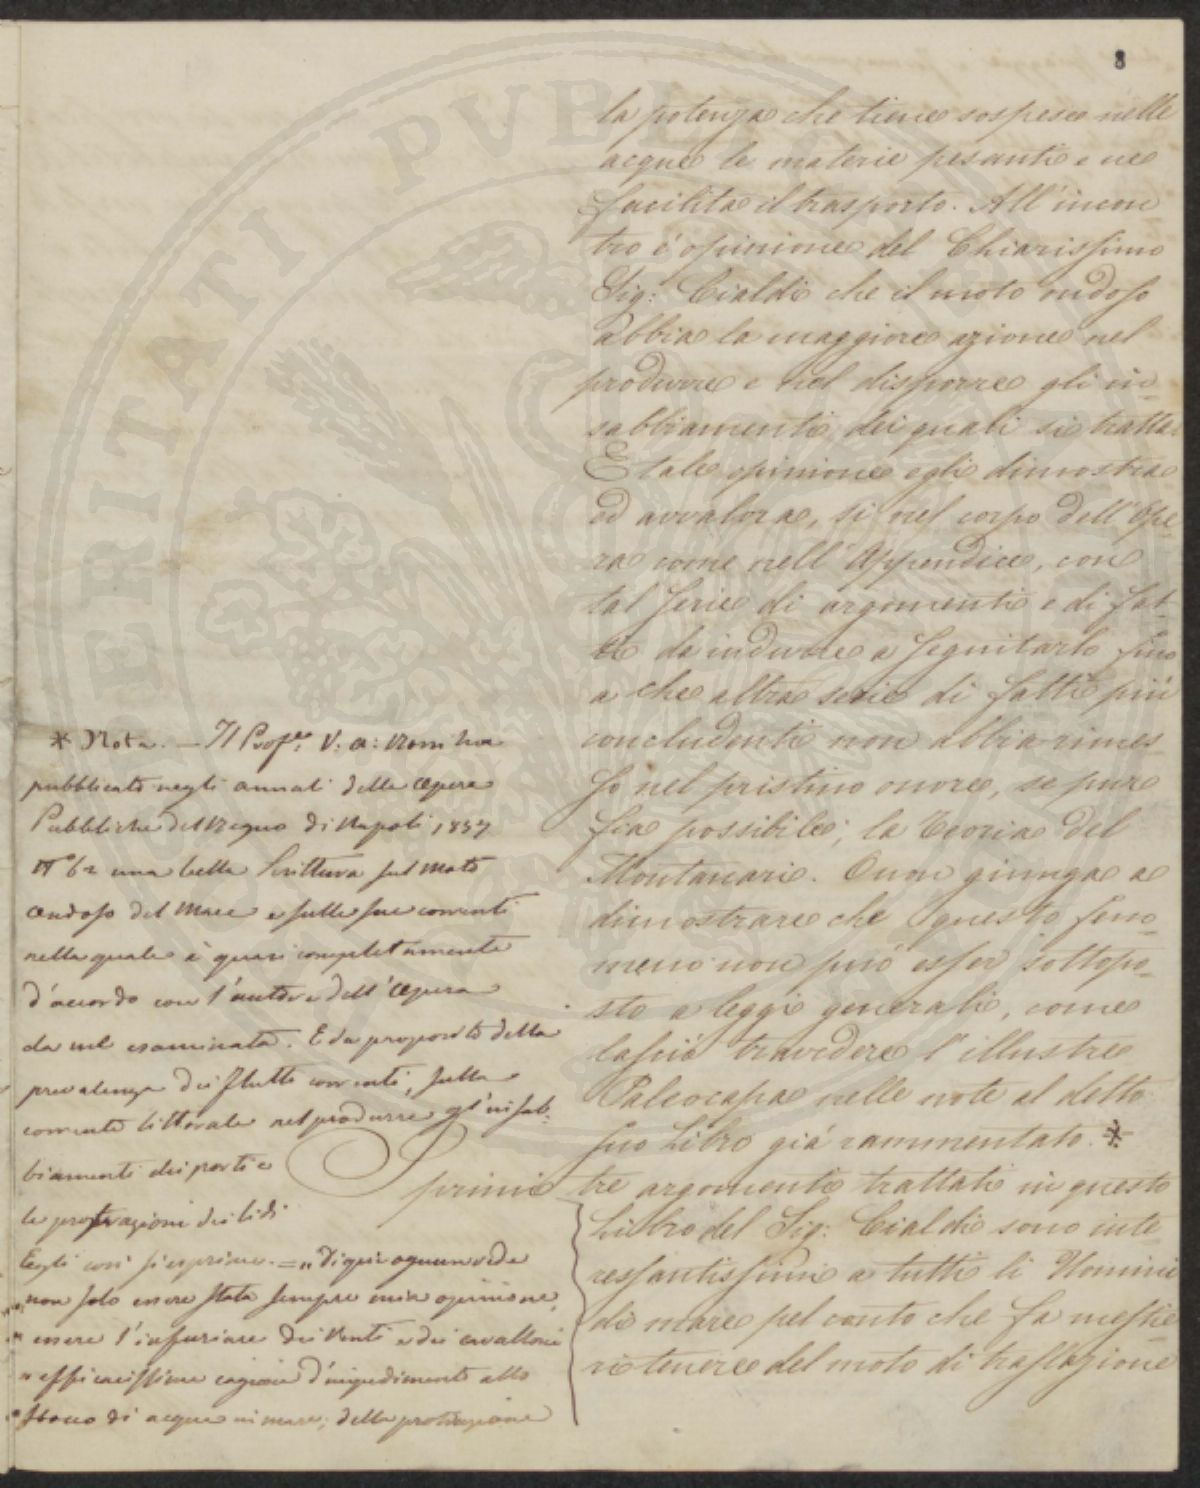 8
la potenza che tiene sospese nelle
acque le materie pesanti e ne
facilita il trasporto. All'incon
tro è opinione del Chiarissimo
Sig: Cialdi che il moto ondoso
abbia la maggiore azione nel
produrre e nel disporre gli in-
sabbiamenti dei quali si tratta.
E tale opinione egli dimostra
ed avvalora, sì nel corpo dell'Ope
ra come nell'Appendice, con
tal serie di argomenti e di fat-
ti da indurre a seguitarlo fino
a che altra serie di fatti più
concludenti non abbia rimes-
so nel pristino onore, se pure
sia possibile, la Teoria del
Montanari. O non giunga a
dimostrare che questo feno
meno non può esser sottopo-
sto a leggi generali, come
lasciò travedere l'illustre
Paleocapa nelle note al detto
suo Libro già rammentato. *
I primi tre argomenti trattati in questo
Libro del Sig: Cialdi sono inte
ressantissimi a tutti li Uomini
di mare pel conto che fa mestie
ri tenere del moto di traslazione
* Nota. — Il Profre. V. A: Rossi ha
pubblicato negli annali delle Opere
Pubbliche del Regno di Napoli 1857
N° 62 una bella Scrittura sul moto
ondoso del mare e sulle sue correnti
nella quale è quasi completamente
d'accordo con l'autore dell'Opera
da me esaminata. E da proposito della
prevalenza dei flutti correnti, sulla
corrente littorale nel produrre gl'insab-
biamenti dei porti e
le protrazioni dei lidi
Egli così si esprime. = „Di qui ognun vede
non solo essere stata sempre mia opinione,
" essere l'infuriare dei venti e dei cavalloni
" efficacissima cagione d'impedimento allo
" sbocco di acque in mare; della protrazione
PERITATI PVBL